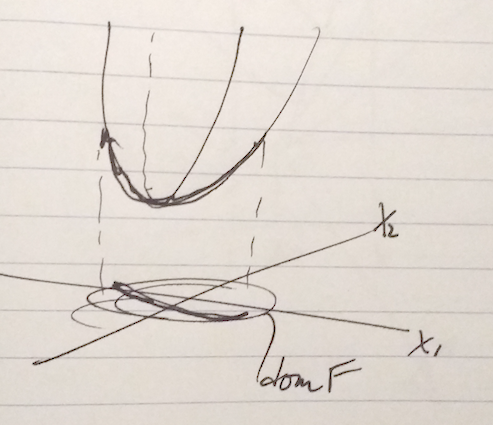 X₂
X₁
dom F